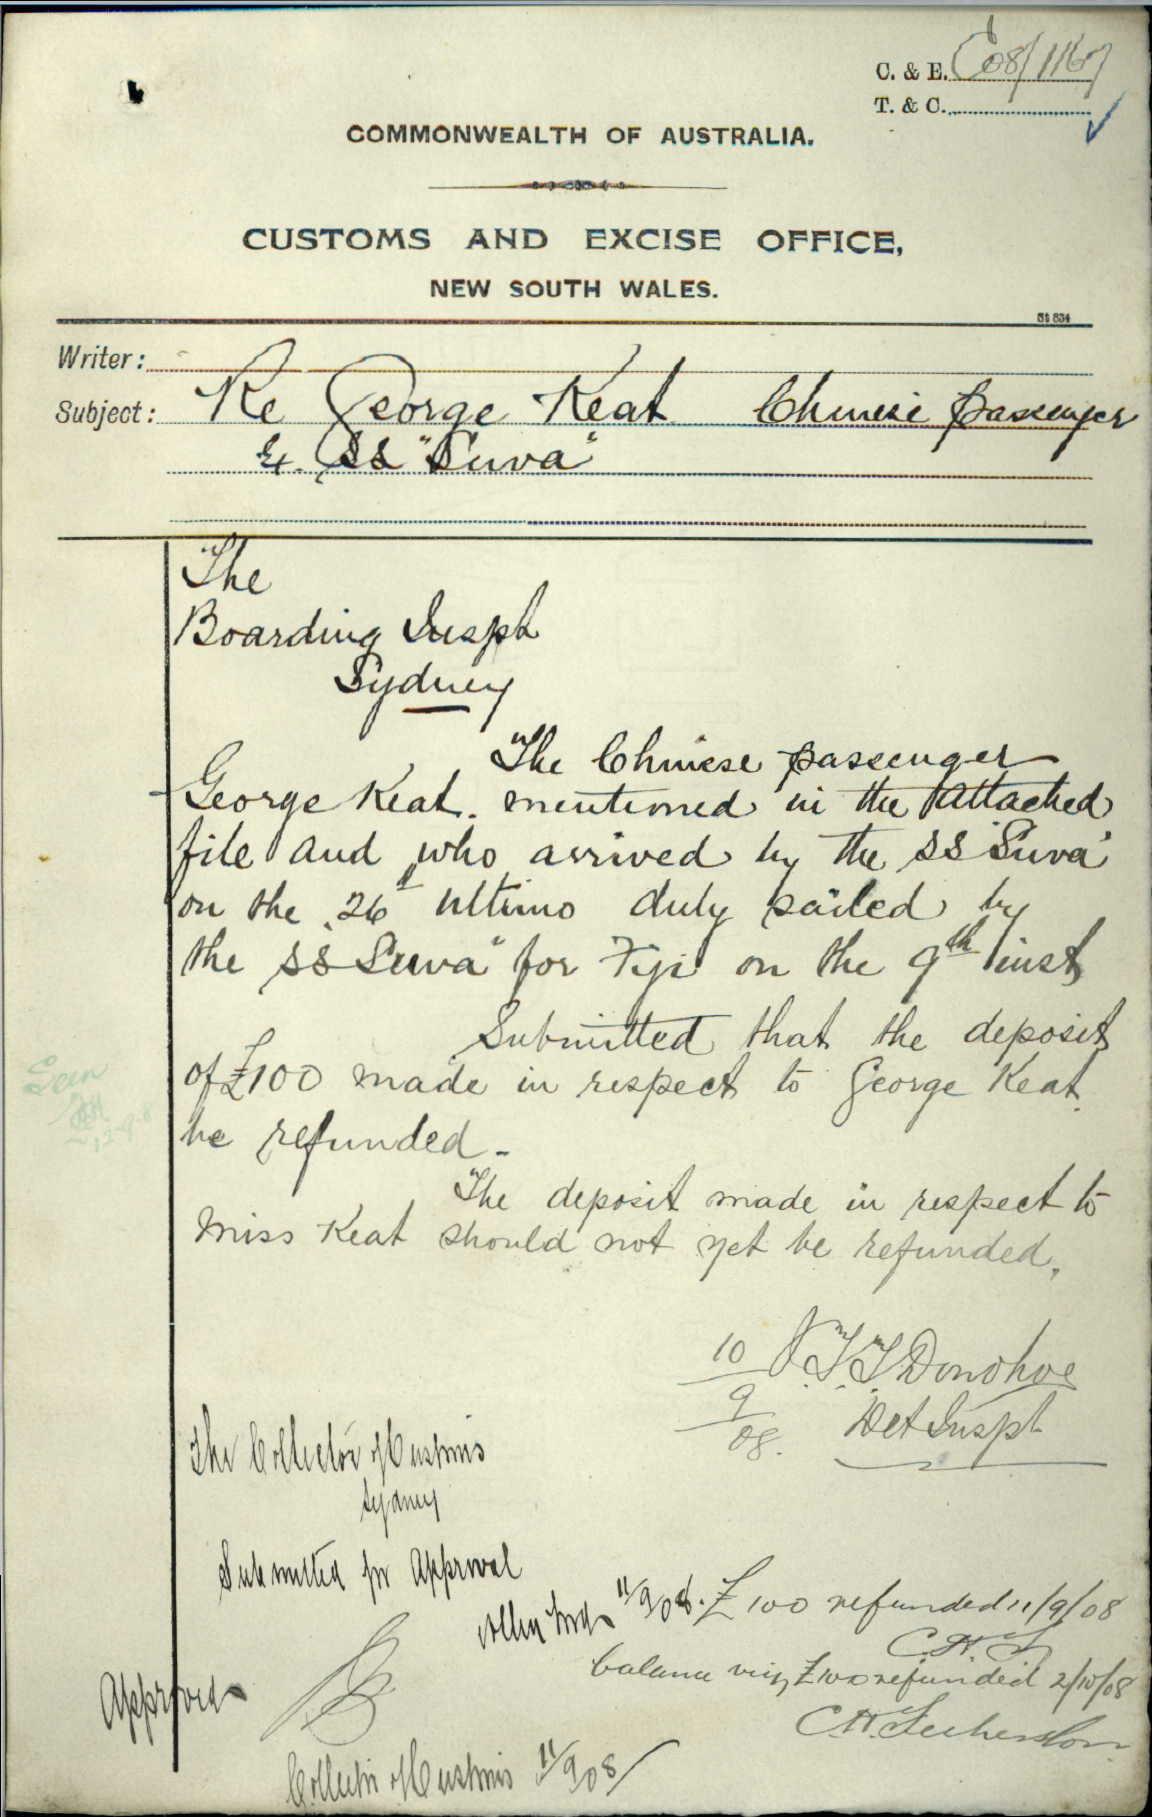 C. & E. C08/1167
T. & C.
COMMONWEALTH OF AUSTRALIA.
CUSTOMS AND EXCISE OFFICE,
NEW SOUTH WALES.
Writer:
Subject: Re George Keat Chinese passenger
Ex. SS "Suva"
The
Boarding Inspt
Sydney
The Chinese passenger
George Keat. mentioned in the attached
file and who arrived by the SS "Suva"
on the 26th ultimo duly sailed by
the SS "Suva" for Fiji on the 9th inst
Submitted that the deposit
of £100 made in respect to George Keat
be refunded.
The deposit made in respect to
Miss Keat should not yet be refunded.
10 J.T.T. Donohoe
9
08. Det Inspt
The Collector of Customs
Sydney
Submitted for Approval
11/9/08. £100 refunded 11/9/08
balance viz £100 refunded 2/10/08
Approved
Collector of Customs 11/9/08